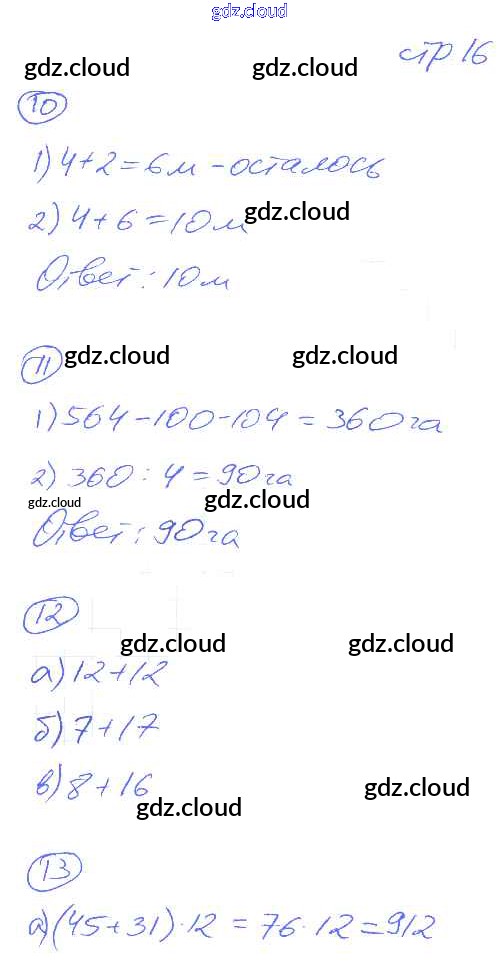 gdz.cloud
стр 16
gdz.cloud gdz.cloud
10
1) 4+2=6м - осталось
2) 4+6=10м gdz.cloud
Ответ: 10м
11 gdz.cloud gdz.cloud
1) 564-100-104=360га
2) 360:4=90га
gdz.cloud gdz.cloud
Ответ: 90га
12
gdz.cloud gdz.cloud
а) 12+12
б) 7+17
в) 8+16 gdz.cloud
gdz.cloud
13
а) (45+31)·12=76·12=912